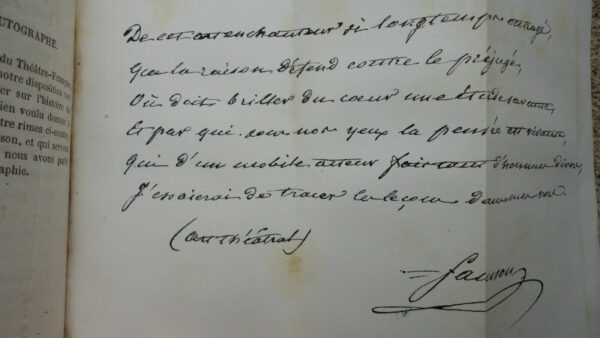 UTOGRAPHE.
du Théâtre-Fran
notre disposition
er sur l'histoire
ien voulu donner à
tre rimes ci-contre
son, et qui serven
nous avons parl
aphie.
De cet art enchanteur si longtemps outragé,
Que la raison défend contre le préjugé,
Où doit briller du cœur une étude savante,
Et par qui sous nos yeux la pensée est vivante,
Qui d'un mobile acteur fait tant d'hommes divers,
J'essaierai de tracer les leçons dans mes vers.
(art théâtral)
Samson